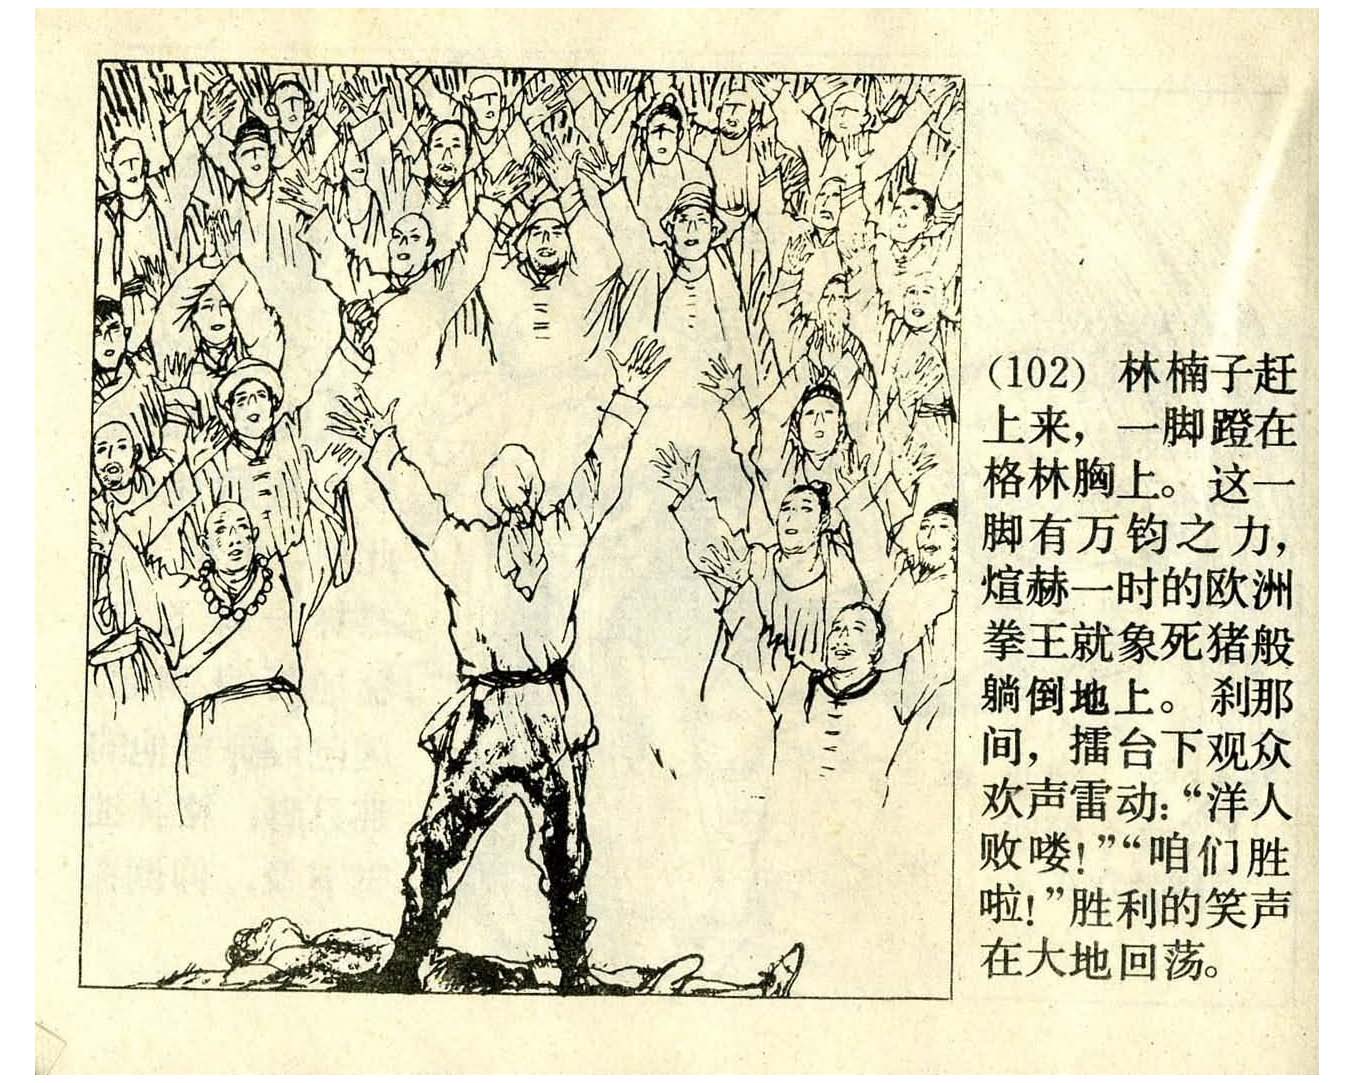 (102) 林楠子赶
上来，一脚蹬在
格林胸上。这一
脚有万钧之力，
煊赫一时的欧洲
拳王就象死猪般
躺倒地上。刹那
间，擂台下观众
欢声雷动：“洋人
败喽！”“咱们胜
啦！”胜利的笑声
在大地回荡。